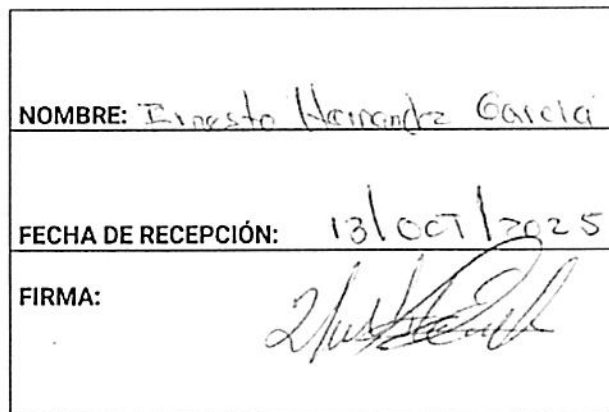 NOMBRE: Ernesto Hernandez Garcia
FECHA DE RECEPCIÓN: 13/OCT/2025
FIRMA: